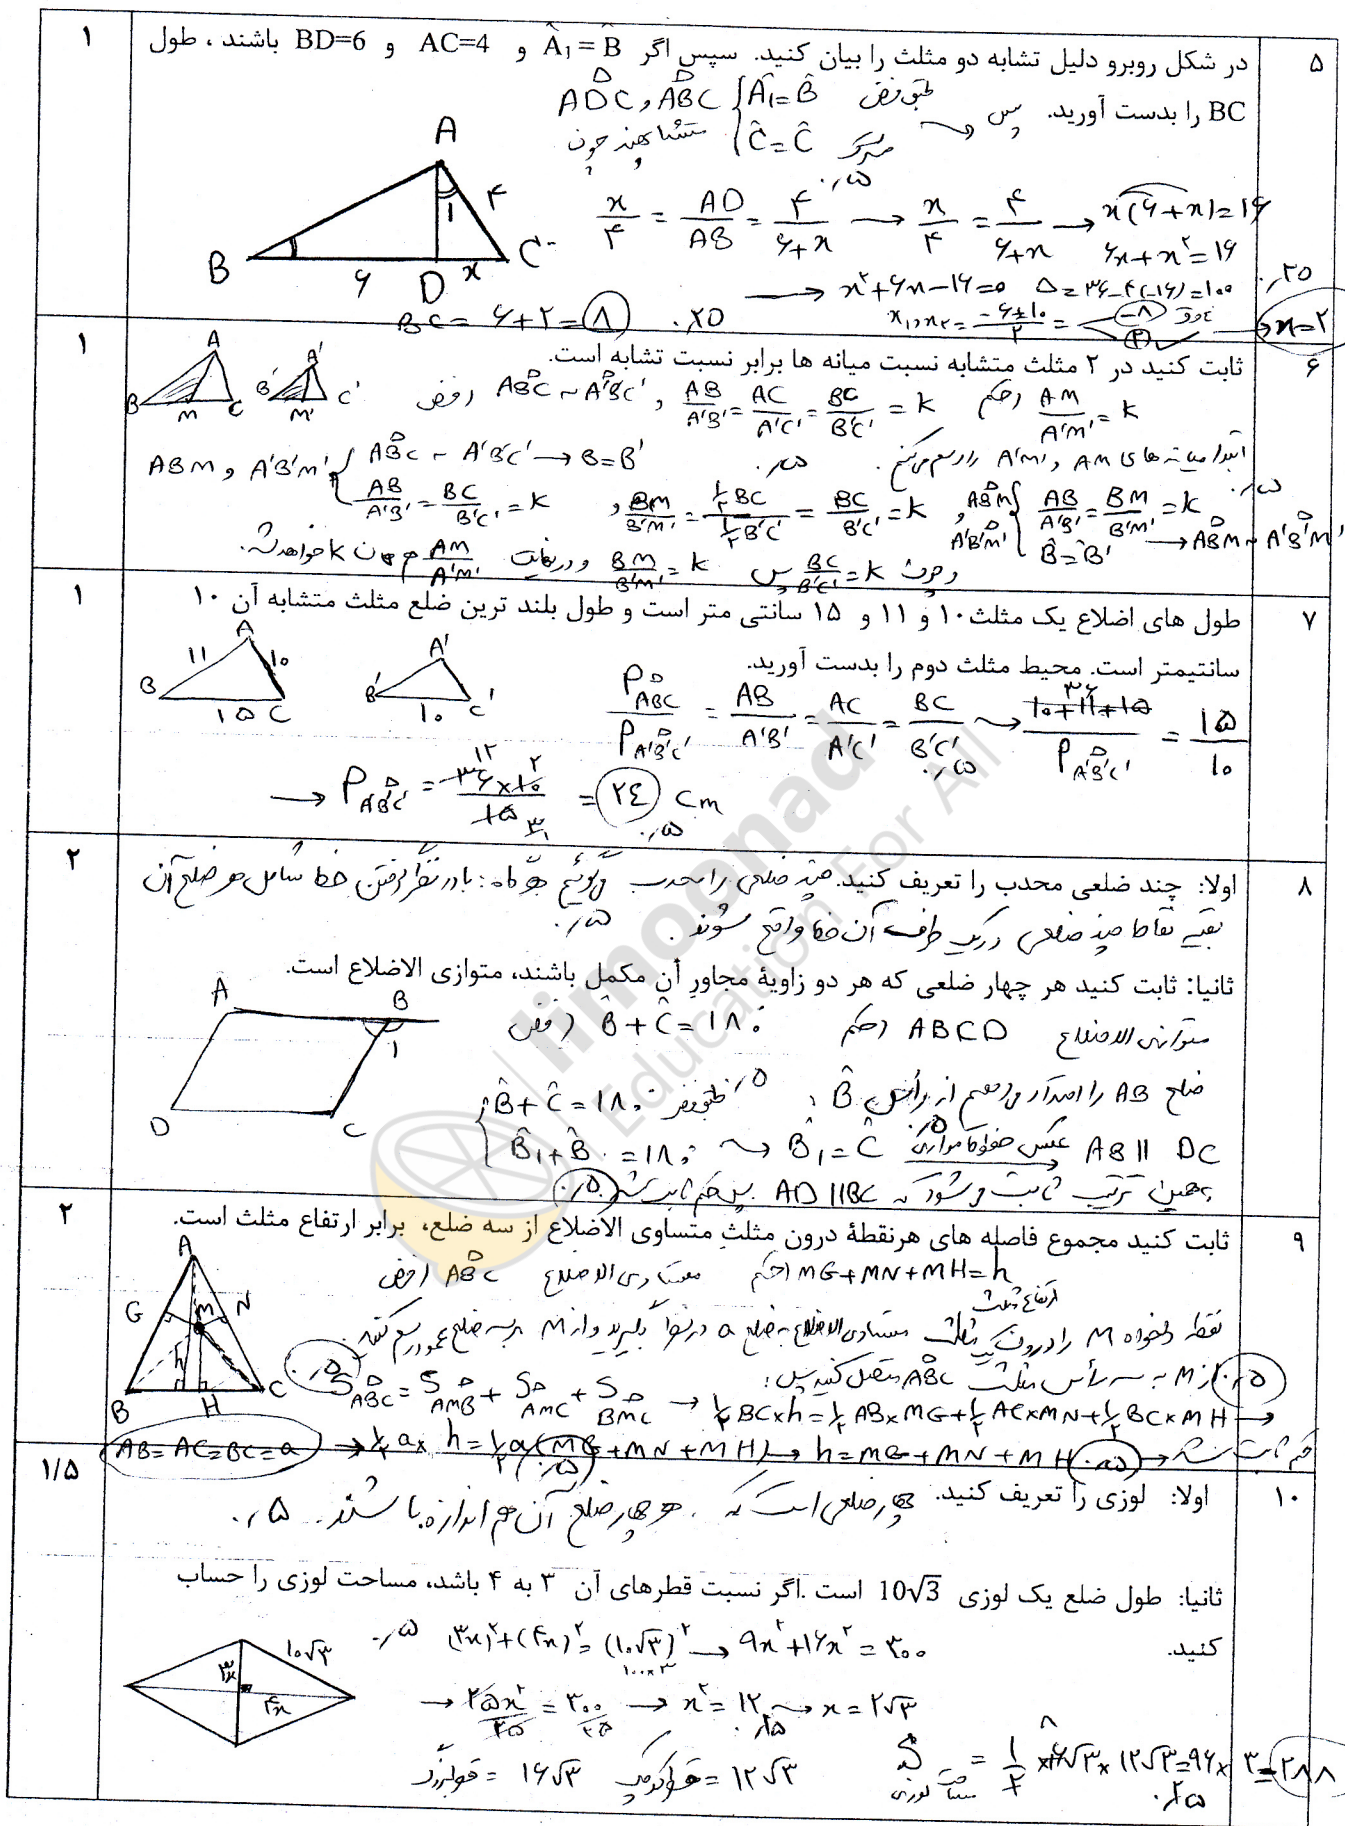 ۵
در شکل روبرو دلیل تشابه دو مثلث را بیان کنید. سپس اگر Â₁ = B̂ و AC=4 و BD=6 باشند ، طول
۱
BC را بدست آورید.
ADC , ABC { Â₁ = B̂ طبق فرض
Ĉ = Ĉ مشترک
پس متشابهند چون
۰٫۵
A
۴
۱
B
۶
D
x
C
x/۴ = AD/AB = ۴/(۶+x) → x/۴ = ۴/(۶+x) → x(۶+x)=۱۶
۶x+x²=۱۶
۰٫۲۵
→ x²+۶x-۱۶=۰ Δ=۳۶-۴(-۱۶)=۱۰۰
x₁,x₂ = (-۶±۱۰)/۲ = -۸ ۲ ✓ → x=۲
BC = ۶+۲ = ۸ ۰٫۲۵
۶
ثابت کنید در ۲ مثلث متشابه نسبت میانه ها برابر نسبت تشابه است.
۱
A
B
M
C
A'
B'
M'
C'
فرض) ABC ~ A'B'C' , AB/A'B' = AC/A'C' = BC/B'C' = k حکم) AM/A'M' = k
ابتدا میانه های AM و A'M' را رسم می کنیم. ۰٫۵
ABM , A'B'M' { ABC ~ A'B'C' → B=B'
AB/A'B' = BC/B'C' = k , BM/B'M' = ½BC/½B'C' = BC/B'C' = k , ABM , A'B'M' { AB/A'B' = BM/B'M' = k
B̂ = B̂' → ABM ~ A'B'M' ۰٫۵
و چون BC/B'C' = k پس BM/B'M' = k و در نهایت AM/A'M' هم همان k خواهد شد.
۷
طول های اضلاع یک مثلث ۱۰ و ۱۱ و ۱۵ سانتی متر است و طول بلند ترین ضلع مثلث متشابه آن ۱۰
۱
سانتیمتر است. محیط مثلث دوم را بدست آورید.
A
۱۱
۱۰
B
۱۵
C
A'
B'
۱۰
C'
P ABC / P A'B'C' = AB/A'B' = AC/A'C' = BC/B'C' → ۳۶ ۱۰+۱۱+۱۵ / P A'B'C' = ۱۵/۱۰
۰٫۵
→ P A'B'C' = ۳۶×۱۰/۱۵ = ۲۴ cm
۰٫۵
۸
اولا: چند ضلعی محدب را تعریف کنید. چند ضلعی را محدب گوئیم هر گاه: با در نظر گرفتن خط شامل هر ضلع آن
۲
بقیه نقاط چند ضلعی در یک طرف آن خط واقع شوند. ۰٫۵
ثانیا: ثابت کنید هر چهار ضلعی که هر دو زاویهٔ مجاورِ آن مکمل باشند، متوازی الاضلاع است.
A
B
۱
C
D
فرض) B̂ + Ĉ = ۱۸۰° حکم) ABCD متوازی الاضلاع
ضلع AB را امتداد می دهیم از رأس B̂ :
{ B̂ + Ĉ = ۱۸۰° طبق فرض ۰٫۵
B̂₁ + B̂ = ۱۸۰° → B̂₁ = Ĉ عکس خطوط موازی → AB || DC
۰٫۵
به همین ترتیب ثابت می شود که AD || BC پس حکم ثابت شد ۰٫۵
۹
ثابت کنید مجموع فاصله های هرنقطهٔ درون مثلثِ متساوی الاضلاع از سه ضلع، برابر ارتفاع مثلث است.
۲
A
G
M
N
h
B
H
C
فرض) ABC متساوی الاضلاع حکم) MG+MN+MH=h
ارتفاع مثلث
نقطه دلخواه M را درون یک مثلث متساوی الاضلاع به ضلع a در نظر بگیرید و از M بر سه ضلع عمود رسم کنید. ۰٫۵
از M به سه رأس مثلث ABC متصل کنید پس: ۰٫۵
S ABC = S AMB + S AMC + S BMC → ½BC×h = ½AB×MG + ½AC×MN + ½BC×MH →
AB=AC=BC=a → ½a×h = ½a(MG+MN+MH) → h=MG+MN+MH → حکم ثابت شد
۰٫۵ ۰٫۵
۱۰
اولا: لوزی را تعریف کنید. چهار ضلعی است که هر چهار ضلع آن هم اندازه باشند. ۰٫۵
۱/۵
ثانیا: طول ضلع یک لوزی 10√3 است .اگر نسبت قطرهای آن ۳ به ۴ باشد، مساحت لوزی را حساب
کنید.
۱۰√۳
۳x
۴x
(۳x)²+(۴x)²=(۱۰√۳)² → ۹x²+۱۶x²=۳۰۰
۱۰۰×۳
۰٫۵
→ ۲۵x²/۲۵ = ۳۰۰/۲۵ → x²=۱۲ → x=۲√۳
۰٫۲۵
قطر بزرگ = ۱۶√۳ قطر کوچک = ۱۲√۳
S مساحت لوزی = ½ × ۱۶√۳ × ۱۲√۳ = ۹۶×۳ = ۲۸۸
۰٫۲۵
limoonad
Education For All